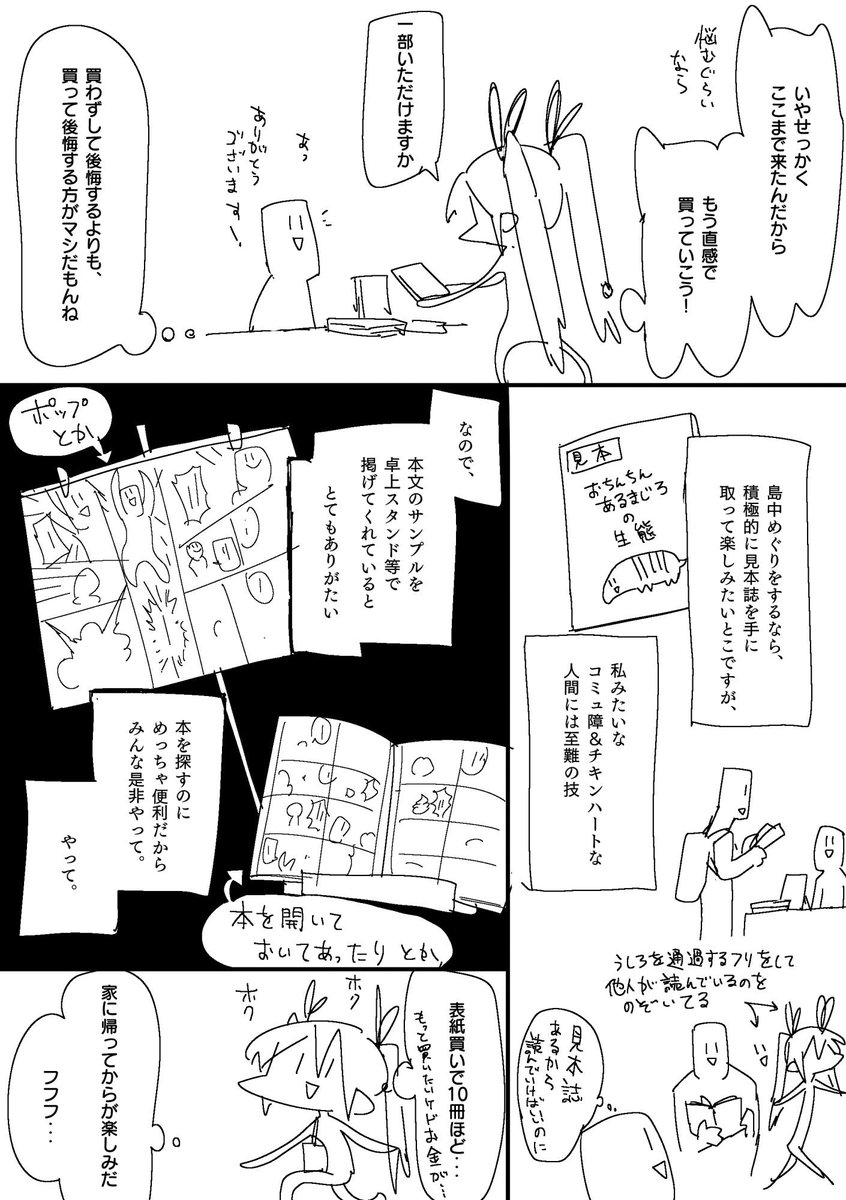 いやせっかく
ここまで来たんだから
悩むぐらい
なら
もう直感で
買っていこう！
一部いただけますか
あっ
ありがとう
ございますー！
買わずして後悔するよりも、
買って後悔する方がマシだもんね
見本
おちんちん
あるまじろ
の
生態
島中めぐりをするなら、
積極的に見本誌を手に
取って楽しみたいとこですが、
私みたいな
コミュ障&チキンハートな
人間には至難の技
うしろを通過するフリをして
他人が読んでいるのを
のぞいてる
見本誌
あるから
読んでいけばいいのに
なので、
本文のサンプルを
卓上スタンド等で
掲げてくれていると
とてもありがたい
ポップ
とか
本を探すのに
めっちゃ便利だから
みんな是非やって。
やって。
本を開いて
おいてあったりとか、
表紙買いで10冊ほど・・・
もっと買いたいケドお金が・・・
ホク
ホク
家に帰ってからが楽しみだ
フフフ・・・